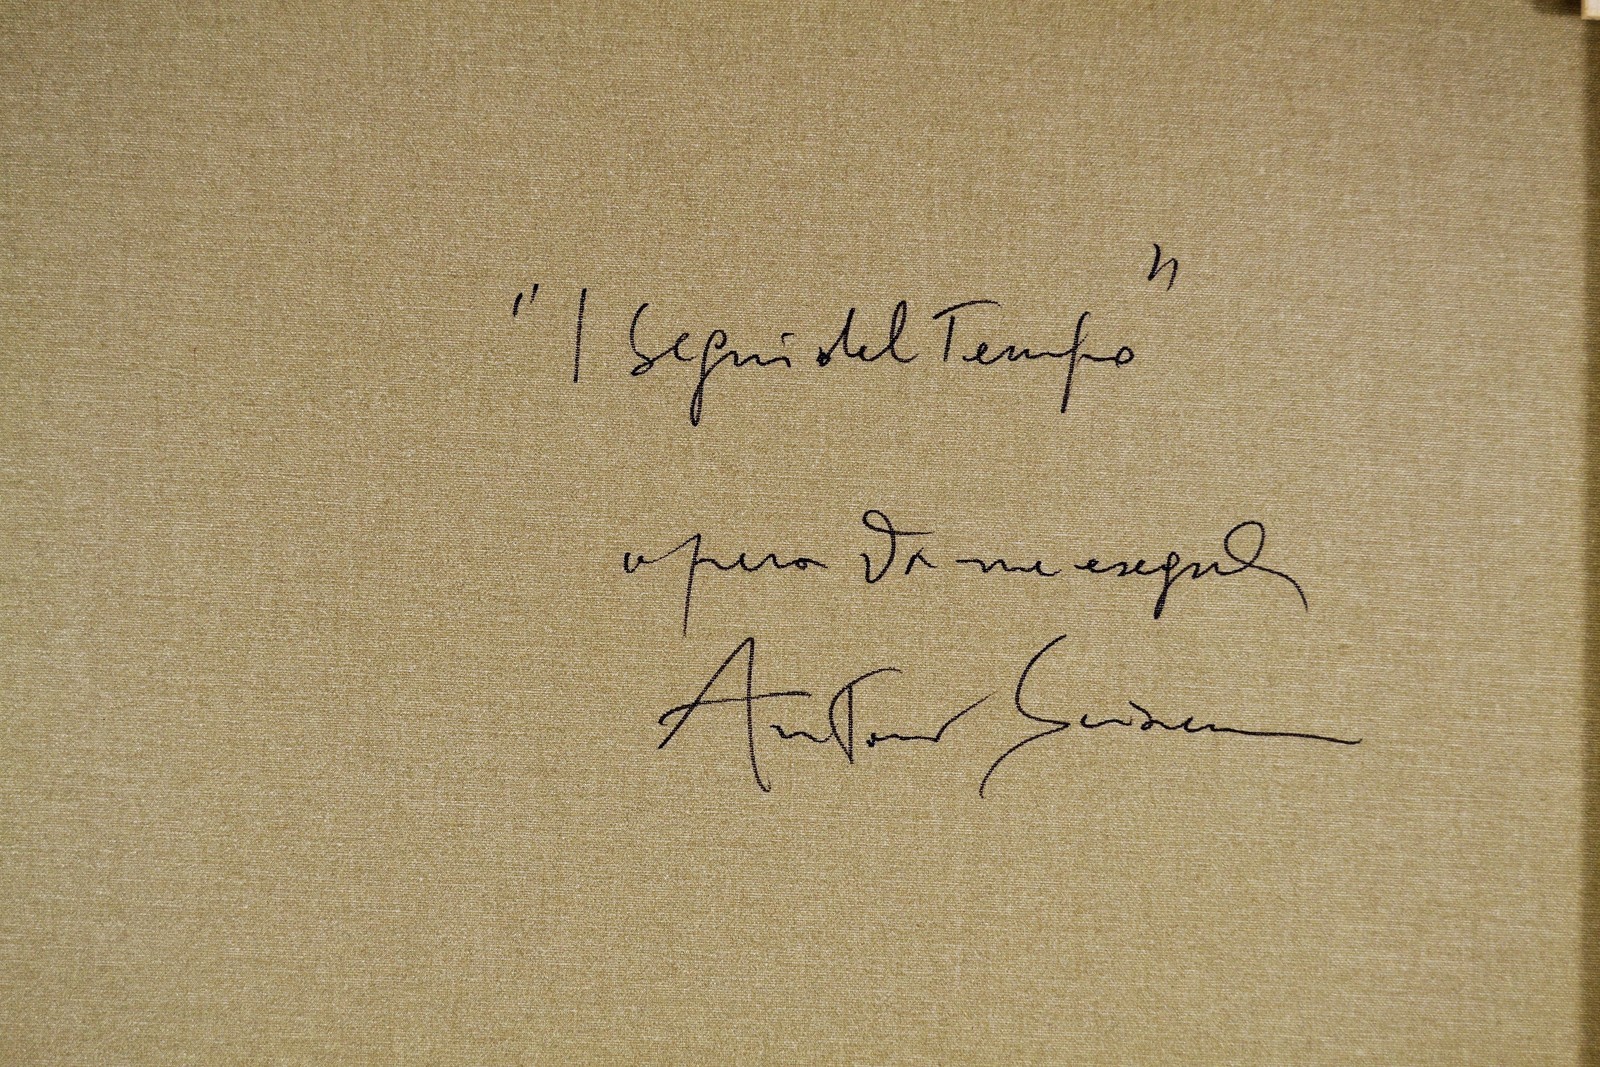 "I Segni del Tempo"
opera da me eseguita
Antonio